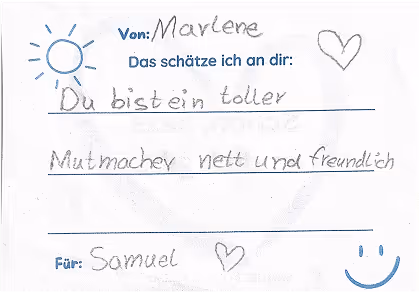 Von: Marlene
Das schätze ich an dir:
Du bist ein toller
Mutmacher nett und freundlich
Für: Samuel